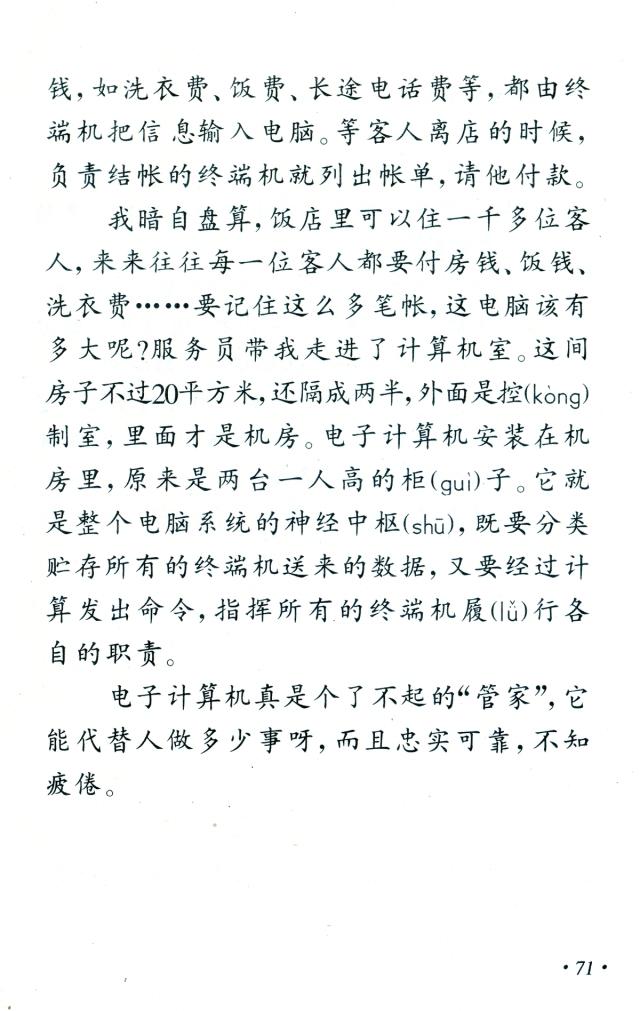 钱，如洗衣费、饭费、长途电话费等，都由终
端机把信息输入电脑。等客人离店的时候，
负责结帐的终端机就列出帐单，请他付款。
我暗自盘算，饭店里可以住一千多位客
人，来来往往每一位客人都要付房钱、饭钱、
洗衣费……要记住这么多笔帐，这电脑该有
多大呢？服务员带我走进了计算机室。这间
房子不过20平方米，还隔成两半，外面是控(kòng)
制室，里面才是机房。电子计算机安装在机
房里，原来是两台一人高的柜(guì)子。它就
是整个电脑系统的神经中枢(shū)，既要分类
贮存所有的终端机送来的数据，又要经过计
算发出命令，指挥所有的终端机履(lǚ)行各
自的职责。
电子计算机真是个了不起的“管家”，它
能代替人做多少事呀，而且忠实可靠，不知
疲倦。
·71·